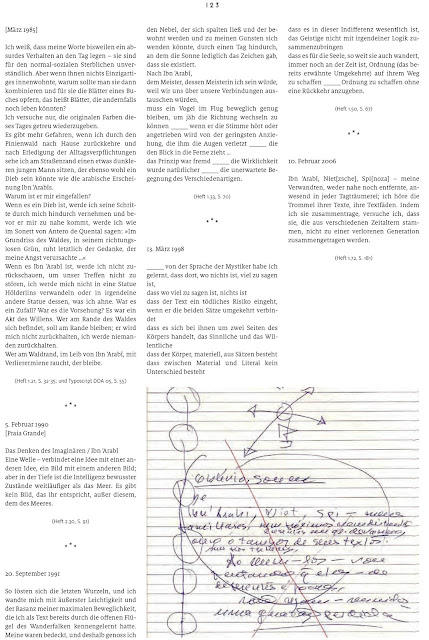 123
[März 1985]
Ich weiß, dass meine Worte bisweilen ein ab-
surdes Verhalten an den Tag legen – sie sind
für den normal-sozialen Sterblichen unver-
ständlich. Aber wenn ihnen nichts Einzigarti-
ges innewohnte, warum sollte man sie dann
kombinieren und für sie die Blätter eines Bu-
ches opfern, das heißt Blätter, die andernfalls
noch leben könnten?
Ich versuche nur, die originalen Farben die-
ses Tages getreu wiederzugeben.
Es gibt mehr Gefahren, wenn ich durch den
Pinienwald nach Hause zurückkehre und
nach Erledigung der Alltagsverpflichtungen
sehe ich am Straßenrand einen etwas dunkle-
ren jungen Mann sitzen, der ebenso wohl ein
Dieb sein könnte wie die arabische Erschei-
nung Ibn ʿArabīs.
Warum ist er mir eingefallen?
Wenn es ein Dieb ist, werde ich seine Schrit-
te durch mich hindurch vernehmen und be-
vor er mir zu nahe kommt, werde ich wie
im Sonett von Antero de Quental sagen: »Im
Grundriss des Waldes, in seinem richtungs-
losen Grün, ruht letztlich der Gedanke, der
meine Angst verursachte ...«
Wenn es Ibn ʿArabī ist, werde ich nicht zu-
rückschauen, um unser Treffen nicht zu
stören, ich werde mich nicht in eine Statue
Hölderlins verwandeln oder in irgendeine
andere Statue dessen, was ich ahne. War es
ein Zufall? War es die Vorsehung? Es war ein
Akt des Willens. Wer am Rande des Waldes
sich befindet, soll am Rande bleiben; er wird
mich nicht zurückhalten, ich werde nieman-
den zurückhalten.
Wer am Waldrand, im Leib von Ibn ʿArabī, mit
Verlierermiene raucht, der bleibe.
(Heft 1.21, S. 32-35; und Typoscript DOA 05, S. 55)
* * *
5. Februar 1990
[Praia Grande]
Das Denken des Imaginären / Ibn ʿArabī
Eine Welle – verbindet eine Idee mit einer an-
deren Idee, ein Bild mit einem anderen Bild;
aber in der Tiefe ist die Intelligenz bewusster
Zustände weitläufiger als das Meer. Es gibt
kein Bild, das ihr entspricht, außer diesem,
dem des Meeres.
(Heft 2.30, S. 91)
* * *
20. September 1991
So lösten sich die letzten Wurzeln, und ich
wandte mich mit äußerster Leichtigkeit und
der Rasanz meiner maximalen Beweglichkeit,
die ich als Text bereits durch die offenen Flü-
gel des Wanderfalken kennengelernt hatte.
Meine waren bedeckt, und deshalb genoss ich
den Nebel, der sich spalten ließ und der be-
wohnt werden und zu meinen Gunsten sich
wenden könnte, durch einen Tag hindurch,
an dem die Sonne lediglich das Zeichen gab,
dass sie existiert.
Nach Ibn ʿArabī,
dem Meister, dessen Meisterin ich sein würde,
weil wir uns über unsere Verbindungen aus-
tauschen würden,
muss ein Vogel im Flug beweglich genug
bleiben, um jäh die Richtung wechseln zu
können _____ wenn er die Stimme hört oder
angetrieben wird von der geringsten Ausdeh-
nung, die ihm die Augen verletzt _____ die
den Blick in die Ferne zieht ...
das Prinzip war fremd _____ die Wirklichkeit
wurde natürlicher _____ die unerwartete Be-
gegnung des Verschiedenartigen.
(Heft 1.33, S. 70)
* * *
13. März 1998
_____ von der Sprache der Mystiker habe ich
gelernt, dass dort, wo nichts ist, viel zu sagen
ist,
dass wo viel zu sagen ist, nichts ist
dass der Text ein tödliches Risiko eingeht,
wenn er die beiden Sätze umgekehrt verbin-
det
dass es sich bei ihnen um zwei Seiten des
Körpers handelt, das Sinnliche und das Wil-
lentliche
dass der Körper, materiell, aus Sätzen besteht
dass zwischen Material und Literal kein
Unterschied besteht
dass es in dieser Indifferenz wesentlich ist,
das Geistige nicht mit irgendeiner Logik zu-
sammenzubringen
dass es für die Seele, so weit sie auch wandert,
immer noch an der Zeit ist, Ordnung (das be-
reits erwähnte Umgekehrte) auf ihrem Weg
zu schaffen _____ Ordnung zu schaffen ohne
eine Rückkehr anzugeben.
(Heft 1.50, S. 67)
* * *
10. Februar 2006
Ibn ʿArabī, Niet[zsche], Spi[noza] – meine
Verwandten, weder nahe noch entfernte, an-
wesend in jeder Tagträumerei; ich höre die
Trommel ihrer Texte, ihre Textfäden. Indem
ich sie zusammentrage, versuche ich, dass
sie, die aus verschiedenen Zeitaltern stam-
men, nicht zu einer verlorenen Generation
zusammengetragen werden.
(Heft 1.72, S. 181)
Ibn ʿArabi, Niet, Spi – meus